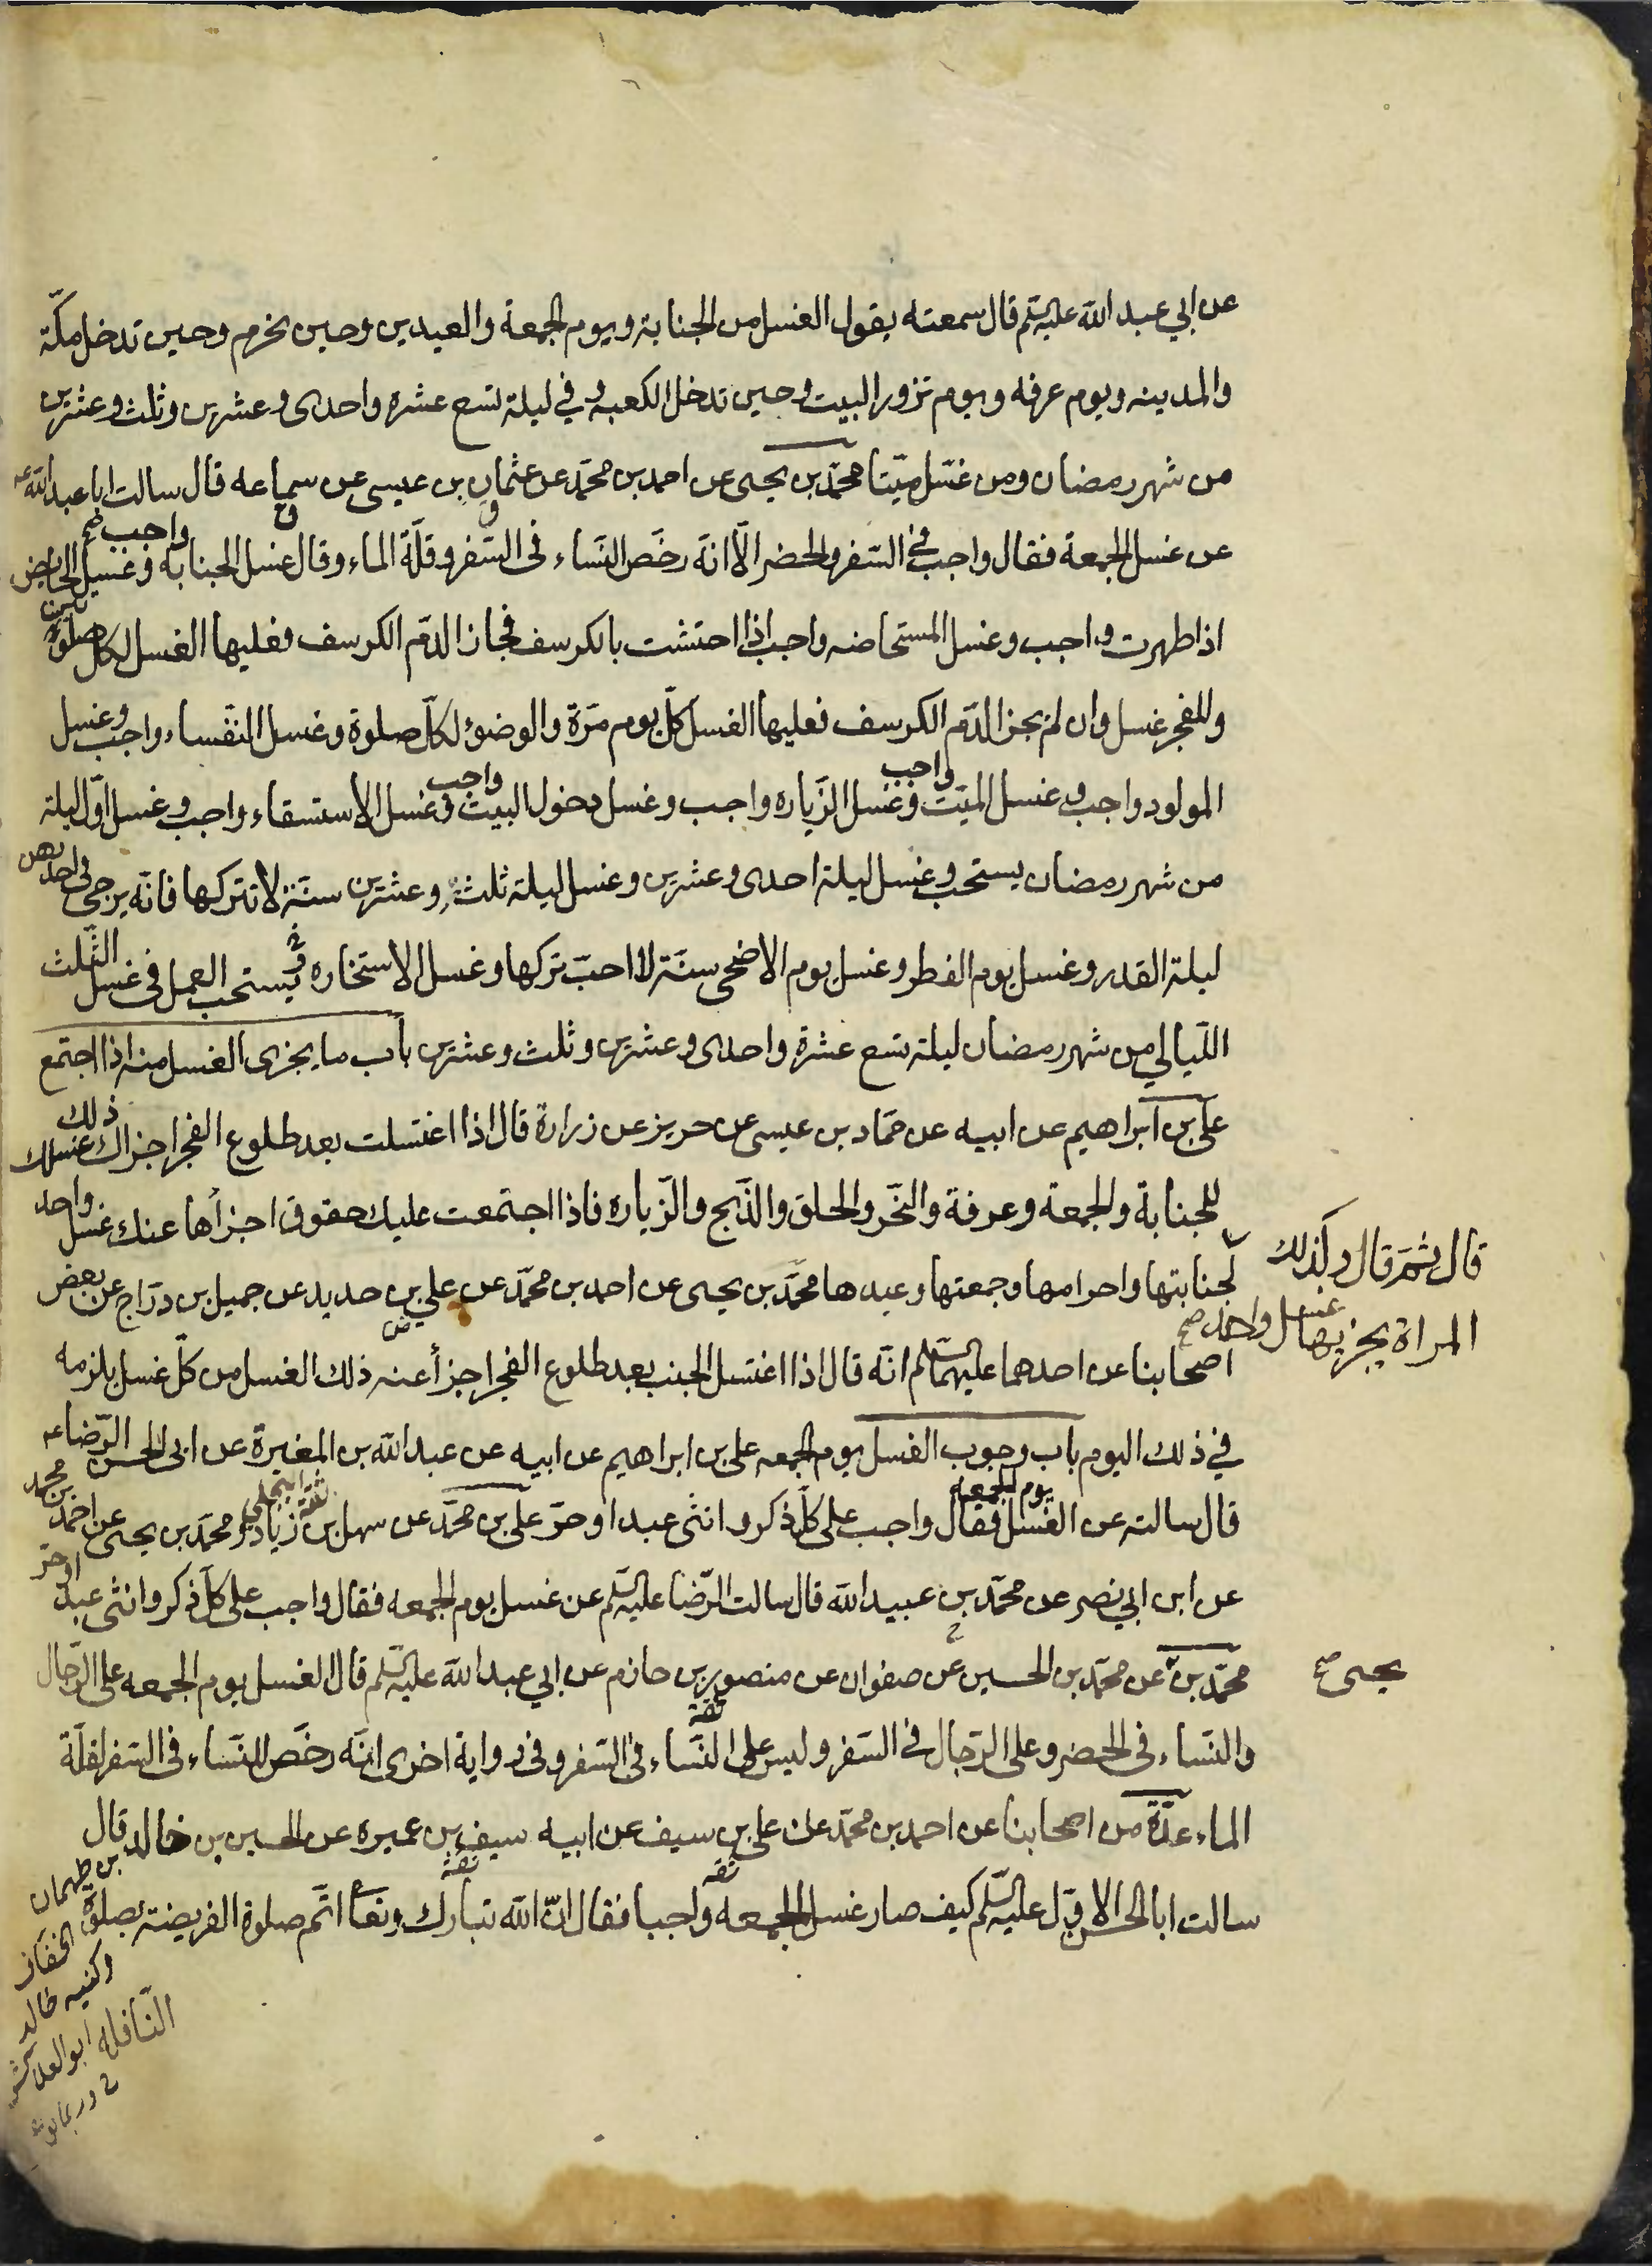 عن ابي عبد الله عليه السلم قال سمعته يقول الغسل من الجنابة ويوم الجمعة والعيدين وحين تحرم وحين تدخل مكّة
والمدينه ويوم عرفه ويوم تزور البيت وحين تدخل الكعبه وفي ليلة تسع عشره واحدى وعشرين وثلث وعشرين
من شهر رمضان ومن غسّل ميّتا محمّد بن يحيى عن احمد بن محمّد عن عثمان بن عيسى عن سماعه قال سالت ابا عبد الله ع
عن غسل الجمعة فقال واجب في السّفر والحضر الّا انّه رخّص النّساء في السّفر وقلّة الماء وقال غسل الجنابه واجب صح وغسل الحايض
اذا طهرت واجب وغسل المستحاضه واجب اذا احتشت بالكرسف فجاز الدّم الكرسف فعليها الغسل لكل صلوتين
وللفجر غسل وان لم يجز الدّم الكرسف فعليها الغسل كلّ يوم مرّة والوضوء لكلّ صلوة وغسل النفساء واجب وغسل
المولود واجب وغسل الميّت واجب وغسل الزّياره واجب وغسل دخول البيت واجب وغسل الاستسقاء واجب وغسل اوّل ليلة
من شهر رمضان يستحب وغسل ليلة احدى وعشرين وغسل ليلة ثلث وعشرين سنّة لا تتركها فانّه يرجى في احديهن
ليلة القدر وغسل يوم الفطر وغسل يوم الاضحى سنّة لا احبّ تركها وغسل الاستخاره يستحب العمل في غسل الثّلث
اللّيالي من شهر رمضان ليلة تسع عشرة واحدى وعشرين وثلث وعشرين باب ما يجزى الغسل منه اذا اجتمع
علي بن ابراهيم عن ابيه عن حمّاد بن عيسى عن حريز عن زرارة قال اذا اغتسلت بعد طلوع الفجر اجزاك غسلك ذلك
للجنابة والجمعة وعرفة والنّحر والحلق والذّبح والزّياره فاذا اجتمعت عليك حقوق اجزأها عنك غسل واحد
قال ثمّ قال وكذلك
المراة يجزيها غسل واحد صح
لجنابتها واحرامها وجمعتها وعيدها محمّد بن يحيى عن احمد بن محمّد عن علي بن حديد عن جميل بن درّاج عن بعض
اصحابنا عن احدهما عليهما السّلم انّه قال اذا اغتسل الجنب بعد طلوع الفجر اجزأ عنه ذلك الغسل من كلّ غسل يلزمه
في ذلك اليوم باب وجوب الغسل يوم الجمعه علي بن ابراهيم عن ابيه عن عبد الله بن المغيرة عن ابي الحسن الرّضا ع
قال سالته عن الغسل يوم الجمعه فقال واجب على كلّ ذكر وانثى عبد او حرّ علي بن محمّد عن سهل بن زياد ومحمّد بن يحيى عن احمد بن محمد
عن ابن ابي نصر عن محمّد بن عبيد الله قال سالت الرّضا عليه السّلم عن غسل يوم الجمعه فقال واجب على كلّ ذكر وانثى عبد او حرّ
محمّد بن عن محمّد بن الحسين عن صفوان عن منصور بن حازم عن ابي عبد الله عليه السّلم قال الغسل يوم الجمعه على الرّجال
يحيى صح
والنّساء في الحضر وعلى الرّجال في السّفر وليس على النّساء في السّفر وفي رواية اخرى انّه رخّص للنّساء في السّفر لقلّة
الماء عدّة من اصحابنا عن احمد بن محمّد عن علي بن سيف عن ابيه سيف بن عميره عن الحسين بن خالد قال
سالت ابا الحسن الاوّل عليه السّلم كيف صار غسل الجمعه واجبا فقال انّ الله تبارك وتعا اتمّ صلوة الفريضة بصلوة
النّافلة
بن طهمان
الخفّاف
وكنيه خالد
ابو العلا